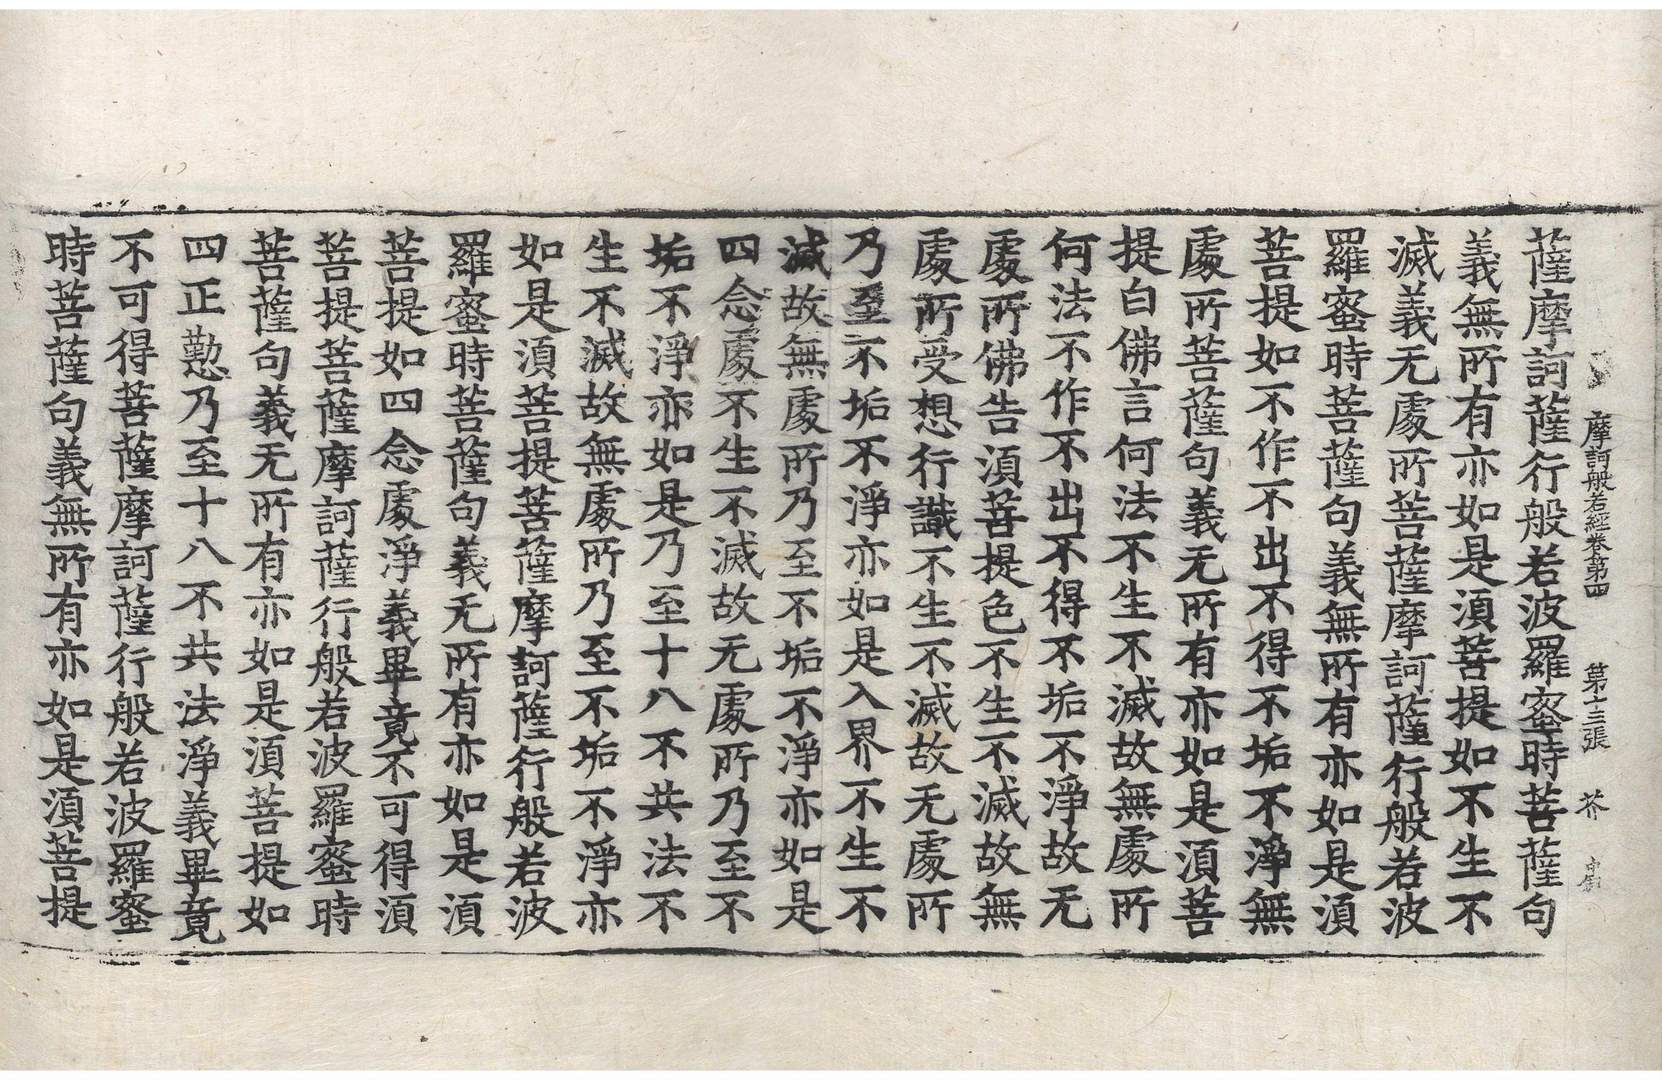 摩訶般若經卷第四　第十三張　芥
薩摩訶薩行般若波羅蜜時菩薩句
義無所有亦如是須菩提如不生不
滅義无處所菩薩摩訶薩行般若波
羅蜜時菩薩句義無所有亦如是須
菩提如不作不出不得不垢不淨無
處所菩薩句義无所有亦如是須菩
提白佛言何法不生不滅故無處所
何法不作不出不得不垢不淨故无
處所佛告須菩提色不生不滅故無
處所受想行識不生不滅故无處所
乃至不垢不淨亦如是入界不生不
滅故無處所乃至不垢不淨亦如是
四念處不生不滅故无處所乃至不
垢不淨亦如是乃至十八不共法不
生不滅故無處所乃至不垢不淨亦
如是須菩提菩薩摩訶薩行般若波
羅蜜時菩薩句義无所有亦如是須
菩提如四念處淨義畢竟不可得須
菩提菩薩摩訶薩行般若波羅蜜時
菩薩句義无所有亦如是須菩提如
四正懃乃至十八不共法淨義畢竟
不可得菩薩摩訶薩行般若波羅蜜
時菩薩句義無所有亦如是須菩提